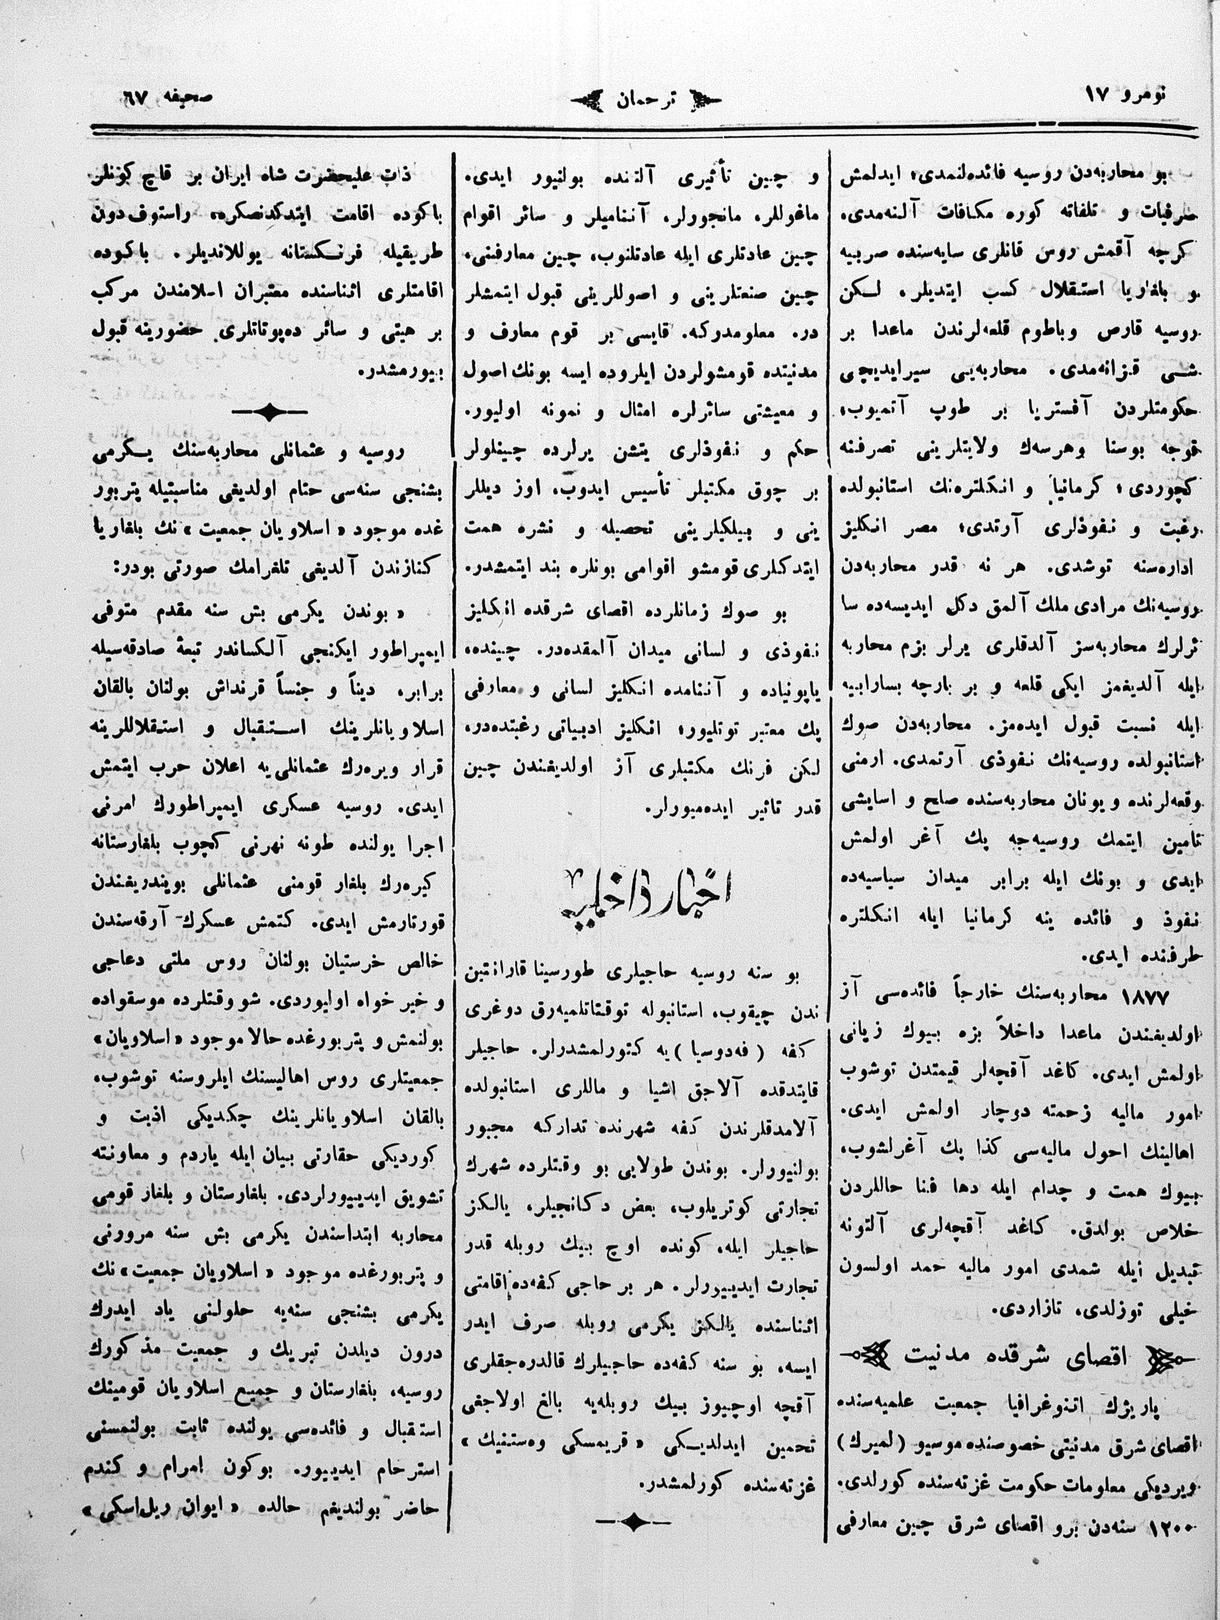 نومرو ١٧
ترجمان
صحیفه ٦٧
بو محاربه‌دن روسیه فائده‌لنمدی؛ ایدلمش
صرفیات و تلفاته کوره مکافات آلنه‌مدی.
کرچه آقمش روس قانلری سایه‌سنده صربیه
و بلغاریا استقلال کسب ایتدیلر، لکن
روسیه قارص وباطوم قلعه‌لرندن ماعدا بر
شی قزانه‌مدی. محاربه‌یی سیرایدیجی
حکومتلردن آفستریا بر طوپ آتمیوب،
قوجه بوسنا وهرسه‌ك ولایتلرینی تصرفنه
کچوردی؛ کرمانیا و انکلتره‌نك استانبولده
رغبت و نفوذلری آرتدی؛ مصر انکلیز
اداره‌سنه توشدی. هر نه قدر محاربه‌دن
روسیه‌نك مرادی ملك آلمق دکل ایدیسه‌ده سا
ئرلرك محاربه‌سز آلدقلری یرلر بزم محاربه
ایله آلدیغمز ایکی قلعه و بر پارچه بسارابیه
ایله نسبت قبول ایده‌مز. محاربه‌دن صوك
استانبولده روسیه‌نك نفوذی آرتمدی. ارمنی
وقعه‌لرنده و یونان محاربه‌سنده صلح و اسایشی
تامین ایتمك روسیه‌جه پك آغر اولمش
ایدی و بونك ایله برابر میدان سیاسیه‌ده
نفوذ و فائده ینه کرمانیا ایله انکلتره
طرفنده ایدی.
١٨٧٧ محاربه‌سنك خارجاً فائده‌سی آز
اولدیغندن ماعدا داخلاً بزه بیوك زیانی
اولمش ایدی. کاغد آقچه‌لر قیمتدن توشوب
امور مالیه زحمته دوچار اولمش ایدی.
اهالینك احول مالیه‌سی کذا پك آغرلشوب،
بیوك همت و چدام ایله دها فنا حاللردن
خلاص بولدق. کاغد آقچه‌لری آلتونه
تبدیل ایله شمدی امور مالیه حمد اولسون
خیلی توزلدی، تازاردی.
اقصای شرقده مدنیت
پاریژك اتنوغرافیا جمعیت علمیه‌سنده
اقصای شرق مدنیتی خصوصنده موسیو (لمیرك)
ویردیکی معلومات حکومت غزته‌سنده کورلدی.
١٢٠٠ سنه‌دن برو اقصای شرق چین معارفی
و چین تأثیری آلتنده بولنیور ایدی.
ماغوللر، مانجورلر، آننامیلر و سائر اقوام
چین عادتلری ایله عادتلنوب، چین معارفنی،
چین صنعتلرینی و اصوللرینی قبول ایتمشلر
در. معلومدرکه، قایسی بر قوم معارف و
مدنیتده قومشولردن ایلروده ایسه بونك اصول
و معیشتی سائرلره امثال و نمونه اولیور.
حکم و نفوذلری یتشن یرلرده چینلولر
بر چوق مکتبلر تأسیس ایدوب، اوز دیللر
ینی و بیلکیلرینی تحصیله و نشره همت
ایتدکلری قومشو اقوامی بونلره بند ایتمشدر.
بو صوك زمانلرده اقصای شرقده انکلیز
نفوذی و لسانی میدان آلمقده‌در. چینده،
یاپونیاده و آننامده انکلیز لسانی و معارفی
پك معتبر توتلیور؛ انکلیز ادبیاتی رغبتده‌در،
لکن فرنك مکتبلری آز اولدیغندن چین
قدر تاثیر ایده‌میورلر.
اخبار داخلیه
بو سنه روسیه حاجیلری طورسینا قارانتین
ندن چیقوب، استانبوله توقتاتلمیه‌رق دوغری
کفه (فه‌دوسیا) یه کتورلمشدرلر. حاجیلر
قایتدقده آلاجق اشیا و ماللری استانبولده
آلامدقلرندن کفه شهرنده تدارکه مجبور
بولنیورلر. بوندن طولایی بو وقتلرده شهرك
تجارتی کوتریلوب، بعض دکانجیلر، یالکز
حاجیلر ایله، کونده اوچ بیك روبله قدر
تجارت ایدییررلر. هر بر حاجی کفه‌ده اقامتی
اثناسنده یالکز یکرمی روبله صرف ایدر
ایسه، بو سنه کفه‌ده حاجیلرك قالدره‌جقلری
آقچه اوچیوز بیك روبله‌یه بالغ اولاجغی
تخمین ایدلدیکی «قریمسکی وه‌ستنیك»
غزته‌سنده کورلمشدر.
ذات علیحضرت شاه ایران بر قاچ کونلر
باکوده اقامت ایتدکدنصکره، راستوف‌دون
طریقیله فرنکستانه یوللاندیلر. باکوده
اقامتلری اثناسنده معتبران اسلامدن مرکب
بر هیئی و سائر ده‌پوتاتلری حضورینه قبول
بیورمشدر.
روسیه و عثمانلی محاربه‌سنك یکرمی
بشنجی سنه‌سی ختام اولدیغی مناسبتیله پتربور
غده موجود «اسلاویان جمعیت» نك بلغاریا
کنازندن آلدیغی تلغرامك صورتی بودر:
«بوندن یکرمی بش سنه مقدم متوفی
ایمپراطور ایکنجی آلکساندر تبعهٔ صادقه‌سیله
برابر، دیناً و جنساً قرنداش بولنان بالقان
اسلاویانلرینك استقبال و استقلاللرینه
قرار ویره‌رك عثمانلی‌یه اعلان حرب ایتمش
ایدی. روسیه عسکری ایمپراطورك امرنی
اجرا یولنده طونه نهرنی کچوب بلغارستانه
کیره‌رك بلغار قومنی عثمانلی بویندریغندن
قورتارمش ایدی. کتمش عسکرك آرقه‌سندن
خالص خرستیان بولنان روس ملتی دعاجی
و خیر خواه اولیوردی. شووقتلرده موسقواده
بولنمش و پتربورغده حالا موجود «اسلاویان»
جمعیتلری روس اهالیسنك ایلروسنه توشوب،
بالقان اسلاویانلرینك چکدیکی اذیت و
کوردیکی حقارتی بیان ایله یاردم و معاونته
تشویق ایدییورلردی. بلغارستان و بلغار قومی
محاربه ابتداسندن یکرمی بش سنه مرورنی
و پتربورغده موجود «اسلاویان جمعیت» نك
یکرمی بشنجی سنه‌یه حلولنی یاد ایدرك
درون دیلدن تبریك و جمعیت مذکورك
روسیه، بلغارستان و جمیع اسلاویان قومینك
استقبال و فائده‌سی یولنده ثابت بولنمسنی
استرحام ایدییور. بوکون امرام و کندم
حاضر بولندیغم حالده «ایوان ریل‌اسکی»